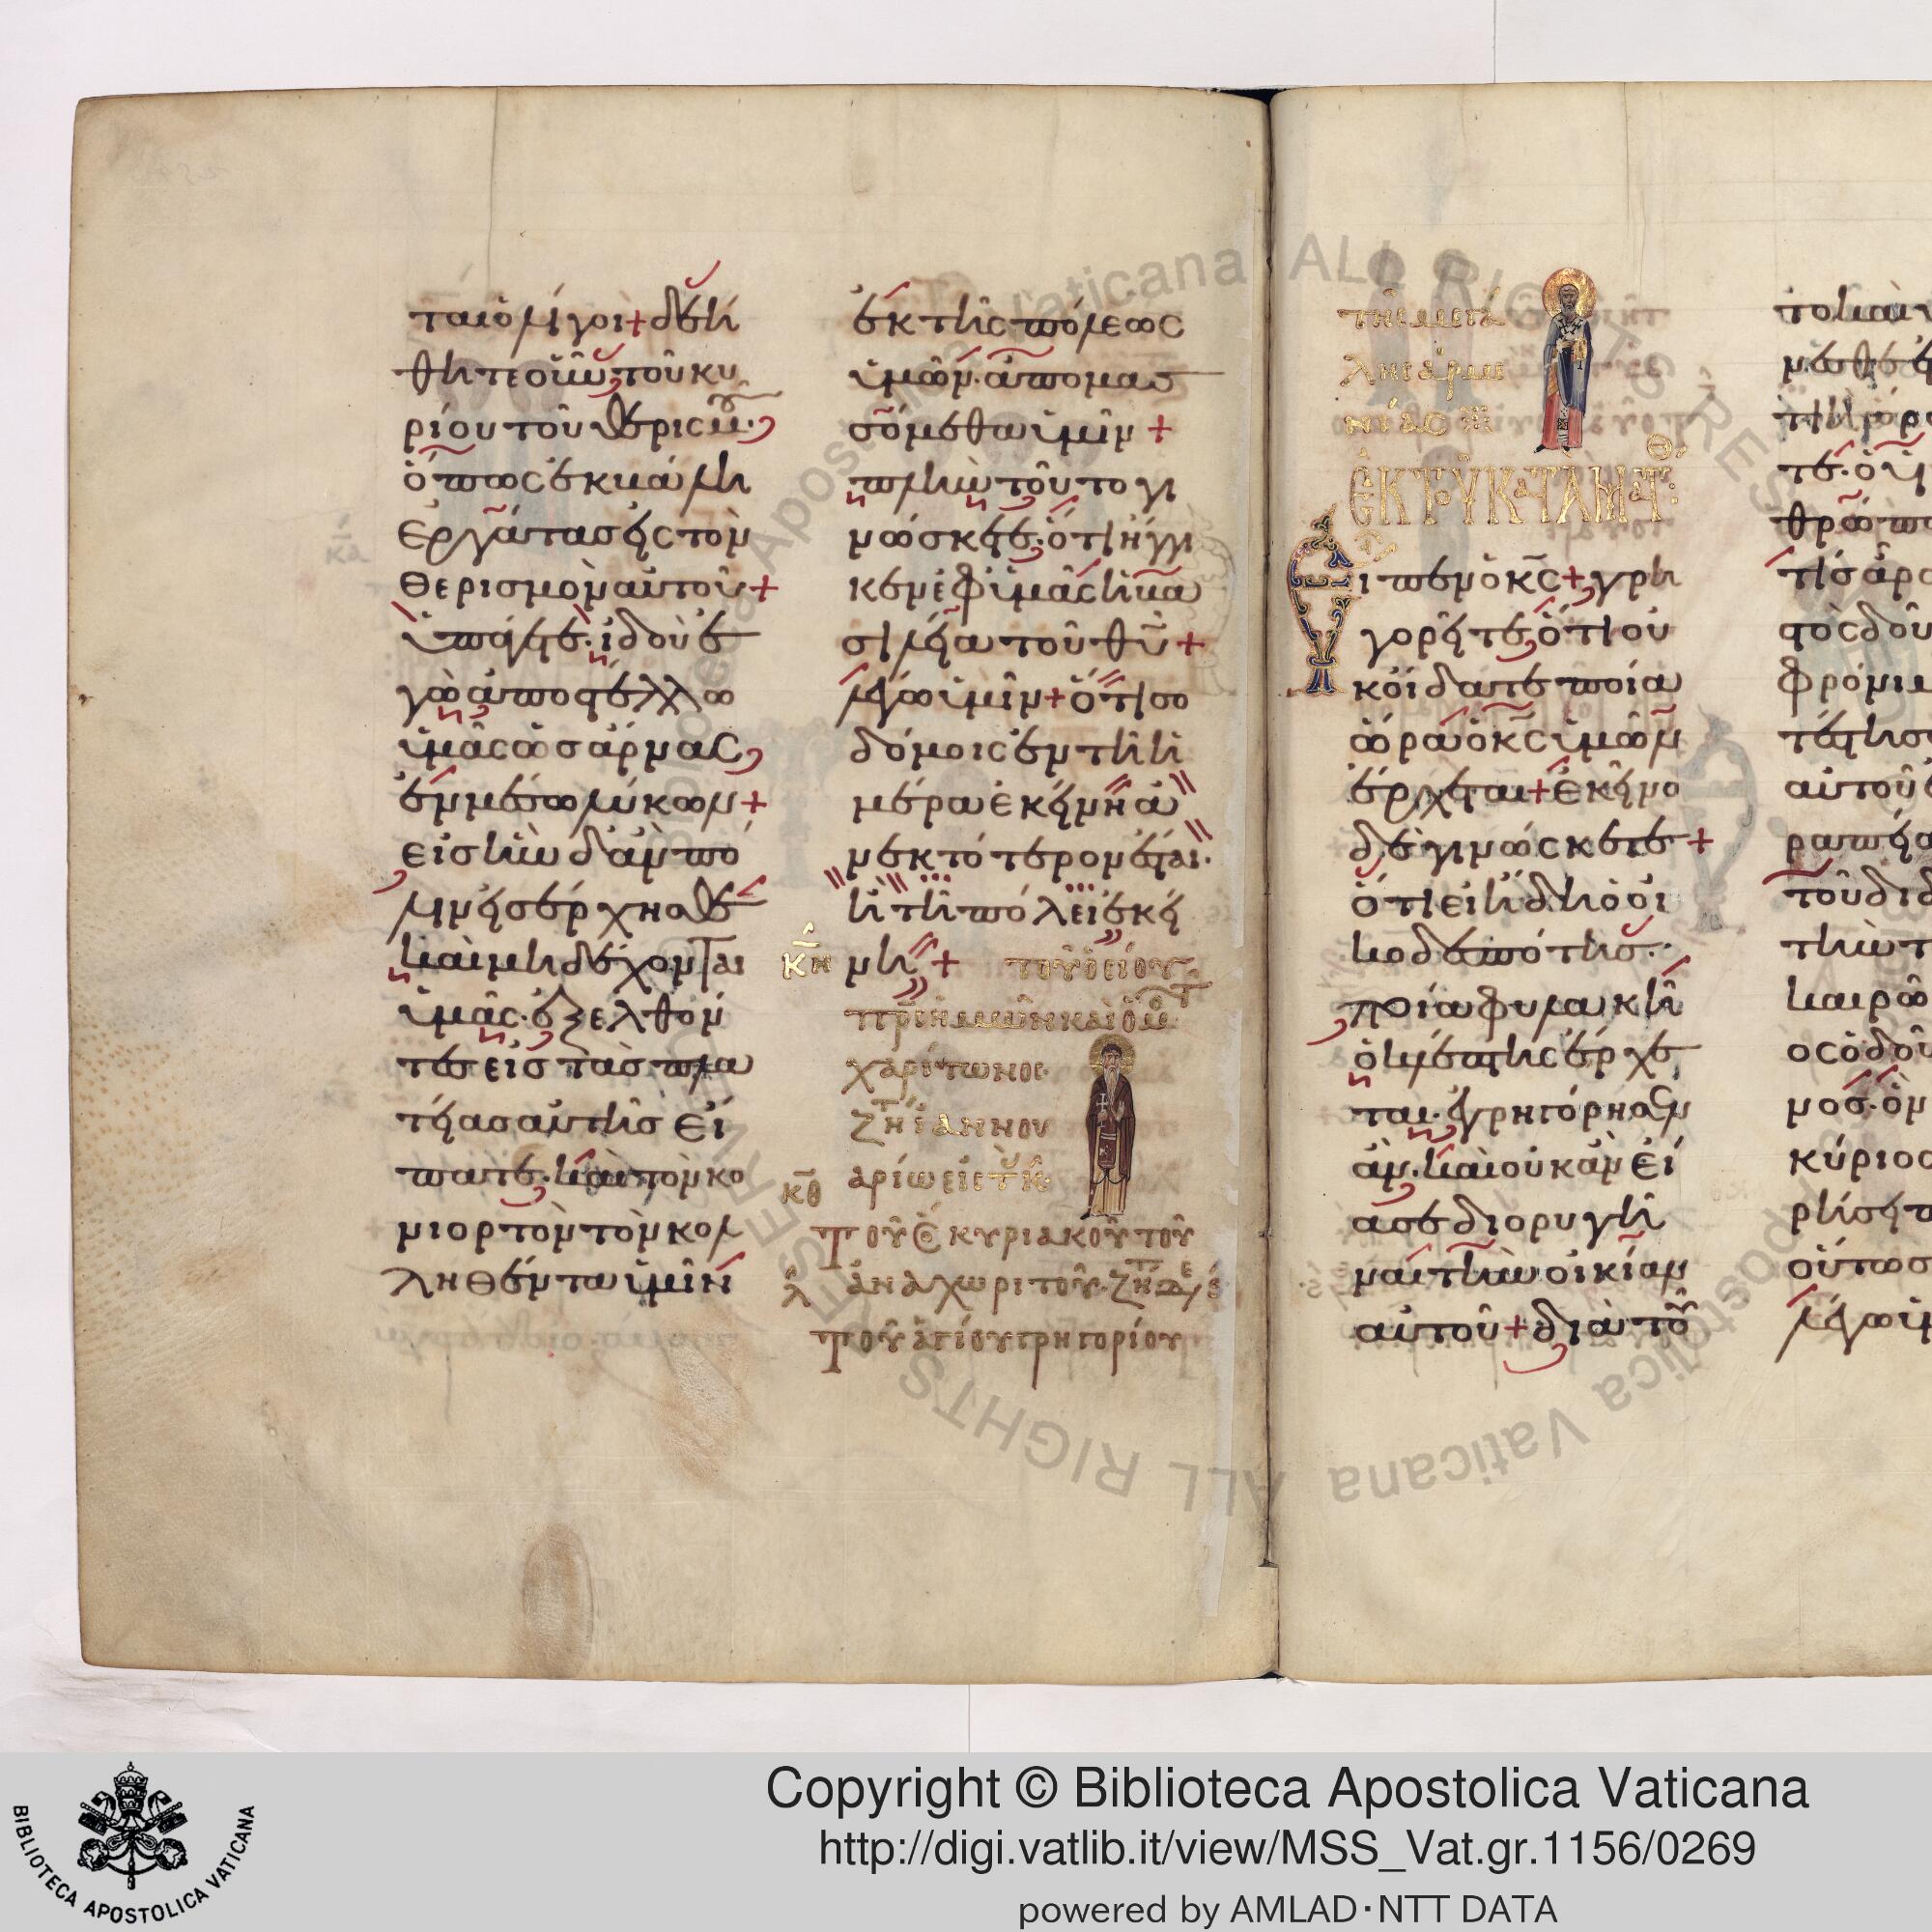 ται ὀλίγοι + δεή
θητε οὖν τοῦ κυ
ρίου τοῦ θερισμοῦ·
ὅπως ἐκβάλη
ἐργάτας εἰς τὸν
θερισμὸν αὐτοῦ +
ὑπάγετε· ἰδοὺ ἐ
γὼ ἀποστέλλω
ὑμᾶς ὡς ἄρνας
ἐν μέσω λύκων +
εἰς ἣν δ' ἂν πό
λιν εἰσέρχησθε
καὶ μὴ δέχονται
ὑμᾶς· ἐξελθόν
τες εἰς τὰς πλα
τείας αὐτῆς εἴ
πατε· καὶ τὸν κο
νιορτὸν τὸν κολ
ληθέντα ὑμῖν
ἐκ τῆς πόλεως
ὑμῶν· ἀπομασ
σόμεθα ὑμῖν +
πλὴν τοῦτο γι
νώσκετε· ὅτι ἤγγι
κεν ἐφ' ὑμᾶς ἡ βα
σιλεία τοῦ θυ +
λέγω ὑμῖν + ὅτι σο
δόμοις ἐν τῆ ἡ
μέρα ἐκείνη ἀ
νεκτότερον ἔσται·
ἢ τῆ πόλει ἐκεί
κη νη + τοῦ ὁσίου
πρς ἡμῶν καὶ ὁμ
χαρίτωνος
ζη ἰαννου
αρίω εἰς τ
κθ τοῦ ὁσ κυριακοῦ τοῦ
λ ἀναχωριτοῦ· ζη
τοῦ ἁγίου γρηγορίου
τῆς μεγά
λης ἀρμε
νίας
ἐκ τοῦ κατὰ ματθ
Εἶπεν ὁ κς + γρη
γορεῖτε ὅτι οὐ
κ οἴδατε ποία
ὥρα ὁ κς ὑμῶν
ἔρχεται + ἐκεῖνο
δὲ γινώσκετε +
ὅτι εἰ ἤδη ὁ οἰ
κοδεσπότης·
ποία φυλακῆ
ὁ κλέπτης ἔρχε
ται· ἐγρηγόρησεν
ἄν· καὶ οὐκ ἂν εἴ
ασε διορυγῆ
ναι τὴν οἰκίαν
αὐτοῦ + διὰ τοῦ
το καὶ
νεσθε
τὴν
τε· ὁ
θρώπ
τίς ἄρ
στὸς δοῦ
φρόνιμ
τέστησ
αὐτοῦ
ραπεία
τοῦ διδ
τὴν τ
καιρῶ
ος ὁ δοῦ
νος· ὃν
κύριος
ρήσει π
οὕτως
λέγω ὑ
Copyright © Biblioteca Apostolica Vaticana
http://digi.vatlib.it/view/MSS_Vat.gr.1156/0269
powered by AMLAD·NTT DATA
BIBLIOTECA APOSTOLICA VATICANA